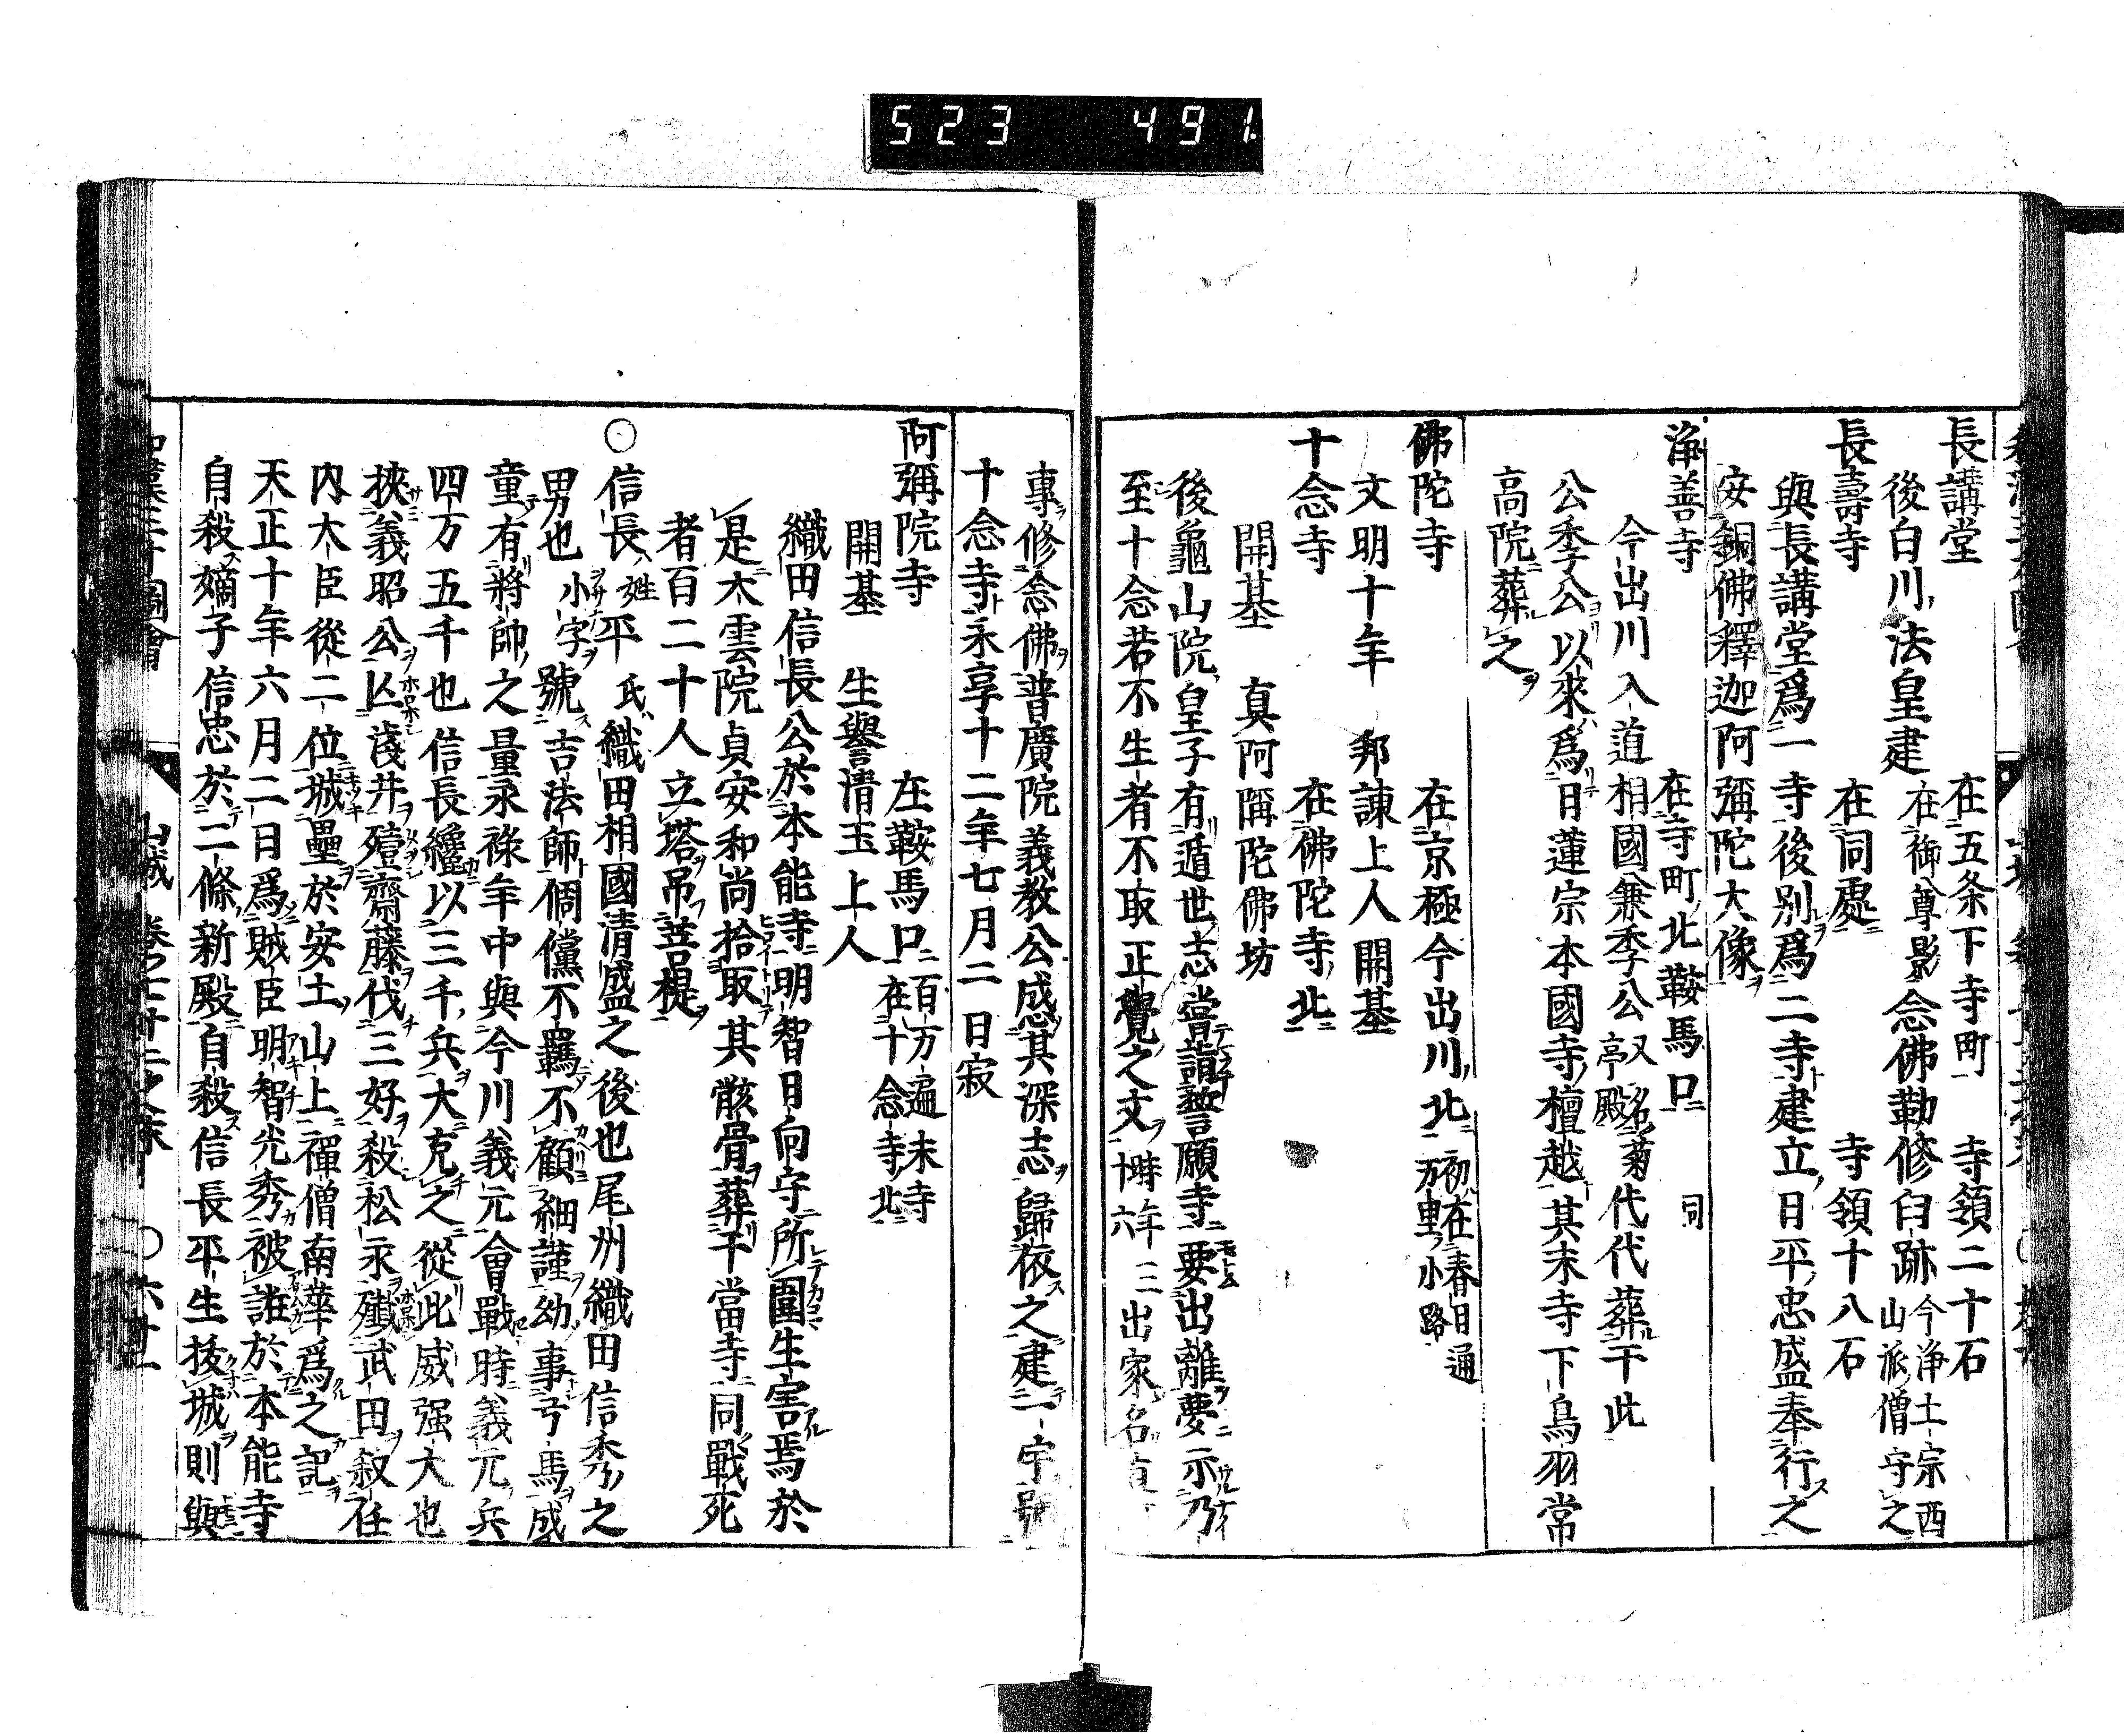 523 491.
長講堂 在五条下寺町 寺領二十石
後白川法皇建 在御尊影 念佛勤修臼跡 今浄土宗西山派僧守之
長壽寺 在同處 寺領十八石
與長講堂爲一寺後別爲二寺建立日平忠盛奉行之
安銅佛釋迦阿彌陀大像
浄善寺 在寺町北鞍馬口 同
今出川入道相國兼季公 又名菊亭殿 代代葬于此
公季公以來爲日蓮宗本國寺檀越其末寺下鳥羽常
高院葬之
佛陀寺 在京極今出川北 初在春日通万里小路
文明十年 邦諫上人開基
十念寺 在佛陀寺北
開基 真阿彌陀佛坊
後龜山院皇子有遁世志當詣誓願寺要出離夢示乃
至十念若不生者不取正覺之文 時年十六 三出家名
專修念佛普廣院義教公感其深志歸依之建一宇號
十念寺永享十二年七月二日寂
阿彌院寺 在鞍馬口 百万遍末寺在十念寺北
開基 生譽清玉上人
織田信長公於本能寺明智日向守所圍生害焉於
是大雲院貞安和尚拾取其骸骨葬于當寺同戰死
者百二十人立塔吊菩提
○信長姓平氏織田相國清盛之後也尾州織田信秀之
男也小字號吉法師倜儻不羈不顧細謹幼事弓馬成
童有將帥之量永祿年中與今川義元會戰時義元兵
四万五千也信長纔以三千兵大克之從此威强大也
挾義昭公亾淺井殪齋藤伐三好殺松永殲武田敘任
内大臣從二位城壘於安土山上禪僧南華爲之記
天正十年六月二日爲賊臣明智光秀被誰於本能寺
自殺嫡子信忠於二條新殿自殺信長平生拔城則與